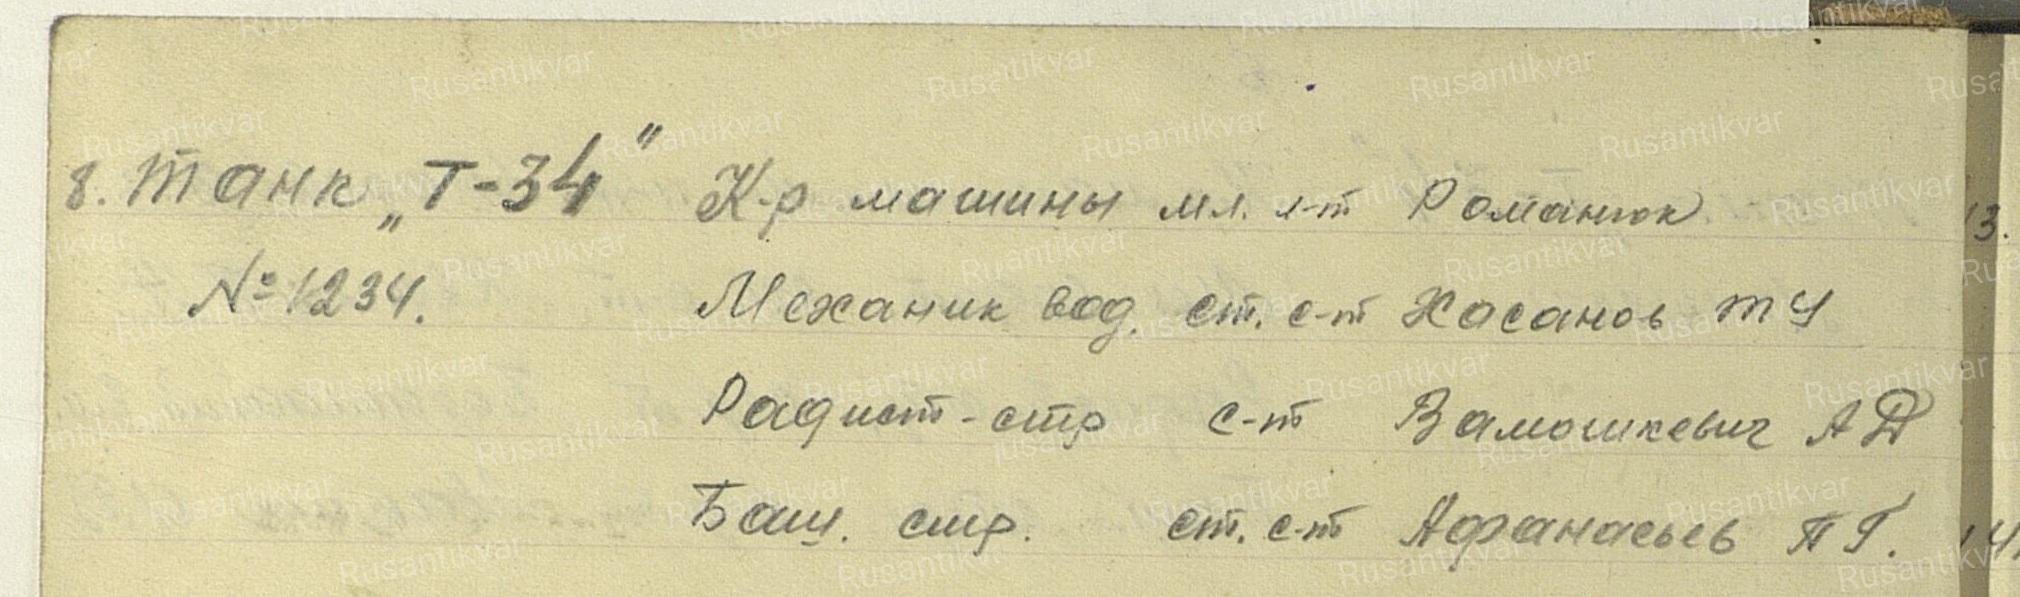 8. Танк „Т-34" К-р машины мл. л-т Романюк
№ 1234. Механик вод. ст. с-т Хасанов
Радист-стр с-т Замошкевич А Д
Баш. стр. ст. с-т Афанасьев П Г.
13.
14.
Rusantikvar